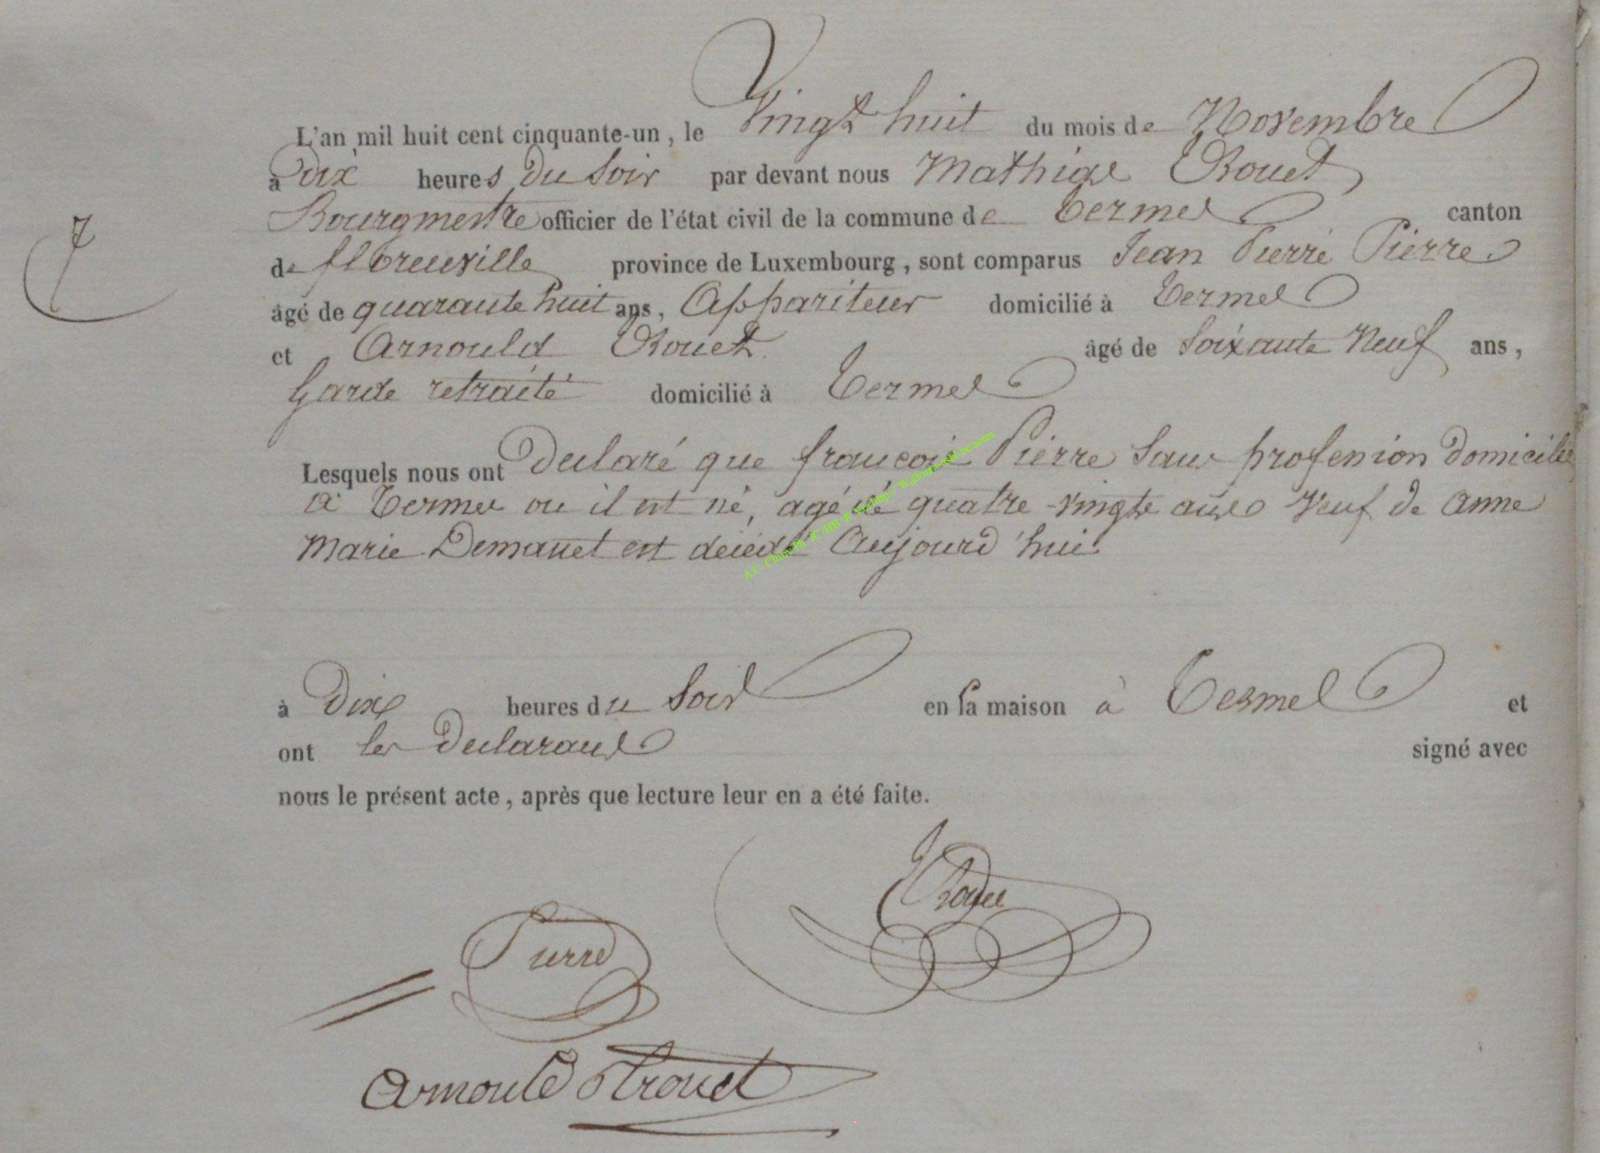 L'an mil huit cent cinquante-un, le Vingt huit du mois de Novembre
à Dix heures du Soir par devant nous Mathias Rouet
Bourgmestre officier de l'état civil de la commune de Termes canton
7
de florenville province de Luxembourg, sont comparus Jean Pierre Pierre
âgé de quarante huit ans, Appariteur domicilié à Termes
et Arnould Rouet âgé de Soixante Neuf ans,
Garde retraité domicilié à Termes
Lesquels nous ont Declaré que françois Pierre Sans profession domicilié
à Termes ou il est né, agé dé quatre-vingts ans Veuf de anne
Marie Demanet est décédé Aujourd'hui
à Dix heures du Soir en sa maison à Termes et
ont les Declarans signé avec
nous le présent acte, après que lecture leur en a été faite.
Pierre
Arnould